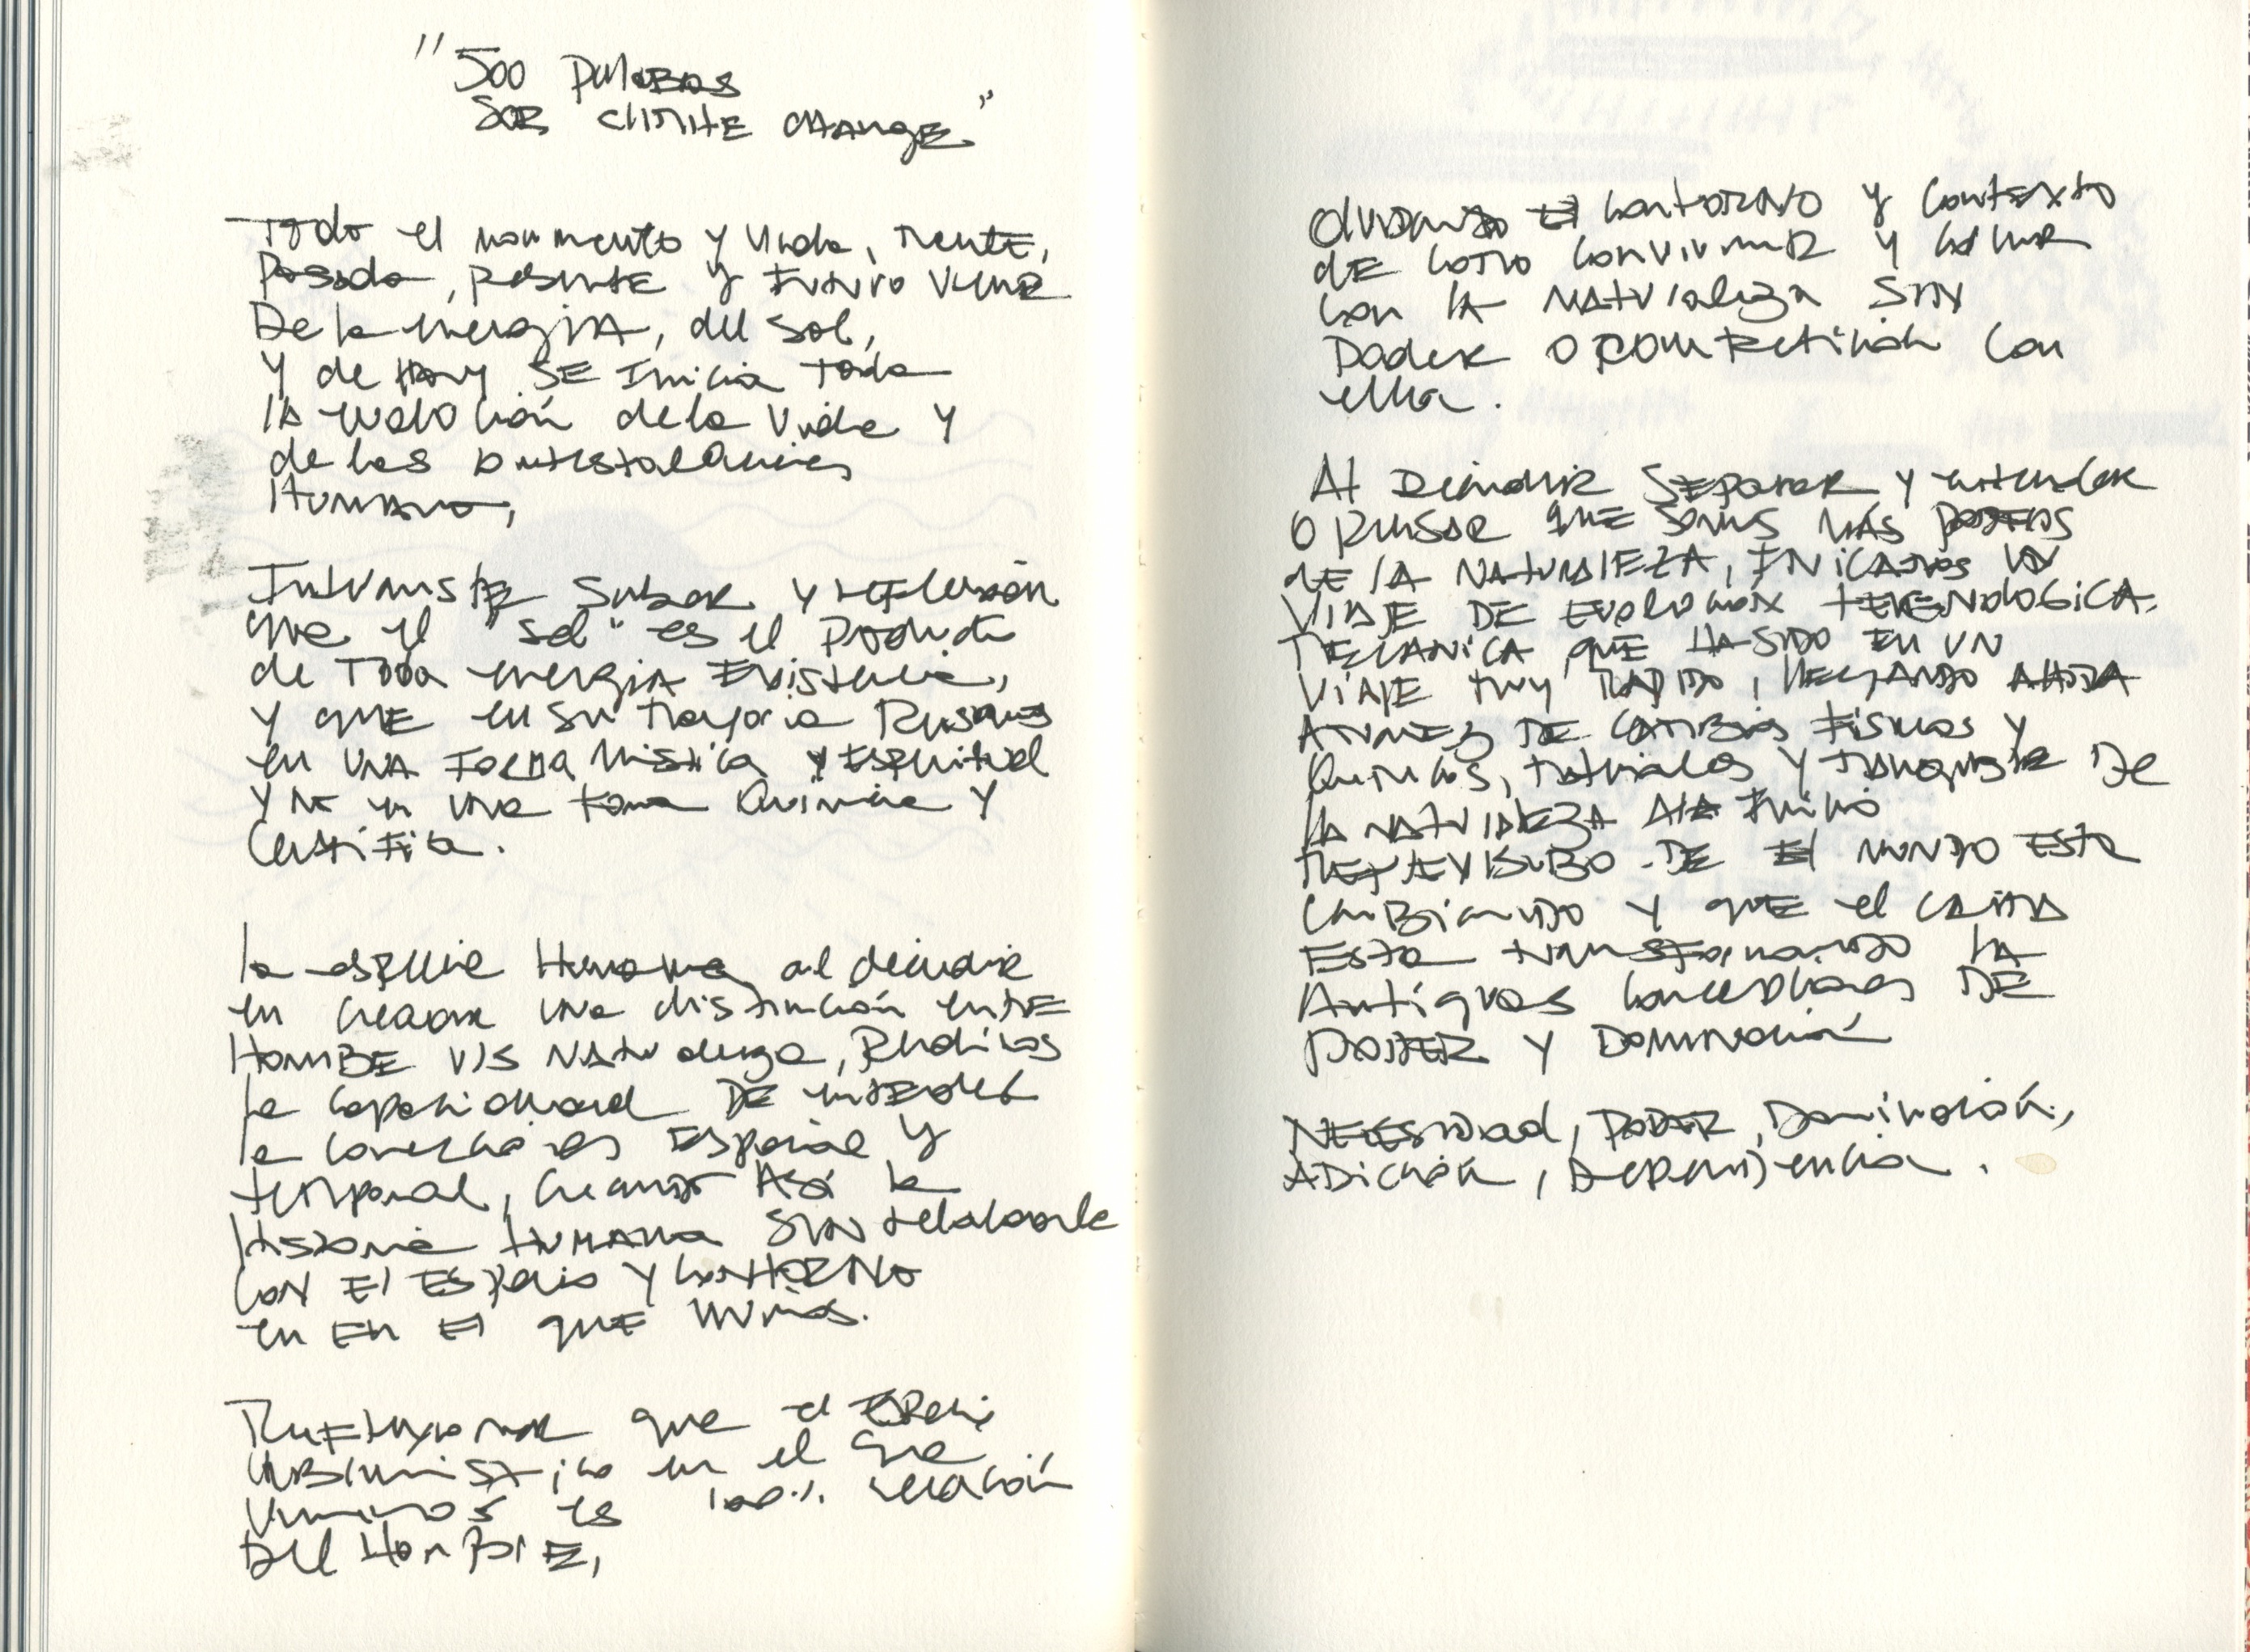 "500 palabras
SOB climate change."
Todo el movimento y vida, mente,
Pasado, presente y Futuro viene
De la energia, del sol,
y de Hay SE Inicia toda
la evolución de la vida y
de los
Humano,
saber y reflexión
que el "sol" es el Producto
de Toda energia Existencia,
y que en su mayoria Pensamos
en una Forma mistica y Espiritual
y no en una forma Quimica y
la especie Humana al decidir
en crear una distinción entre
Hombre v/s Naturaleza, Perdimos
la capacidad DE entender
la conecciones Espacial y
temporal, creando Asi la
Historia Humana SIN
CON El Espacio y CONTORNO
en En El que vivimos.
que el Espacio
urbanistico en el que
vivimos es 100% creación
Del HOMBRE,
olvidando El contorno y contexto
de como convivir y
con la naturaleza SIN
Poder O competicion con
ella.
Al Decidir Separar y entender
O pensar que somos MÁS
de LA NATURALEZA, INICIAMOS UN
VIAJE DE Evolución TECNOLOGICA.
MECANICA QUE HA SIDO EN UN
VIAJE MUY RAPIDO, LLEGANDO AHORA
DE CAMBIOS Fisicos y
Quimicos, DE
LA NATURALEZA
DE El MUNDO ESTA
CAMBIANDO y que el CLIMA
Esta transformando LA
Antiguas concepciones DE
PODER Y DOMINACIÓN
NECESIDAD, PODER, Dominación,
ADICIÓN, Dependencia.